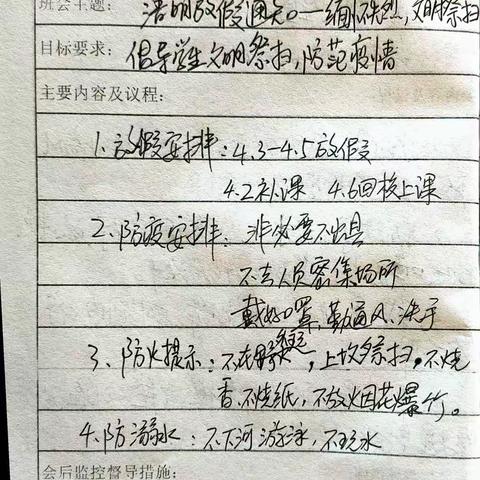 班会主题: 清明放假通知——缅怀先烈,文明祭扫
目标要求: 倡导学生文明祭扫,防范疫情
主要内容及议程:
1. 放假安排: 4.3-4.5放假
4.2补课 4.6回校上课
2. 防疫安排: 非必要不出县
不去人员密集场所
戴好口罩,勤通风、洗手
3、防火提示: 不玩,上坟祭扫,不烧
香、不烧纸,不放烟花爆竹。
4.防溺水: 不下河游泳,不玩水
会后监控督导措施: